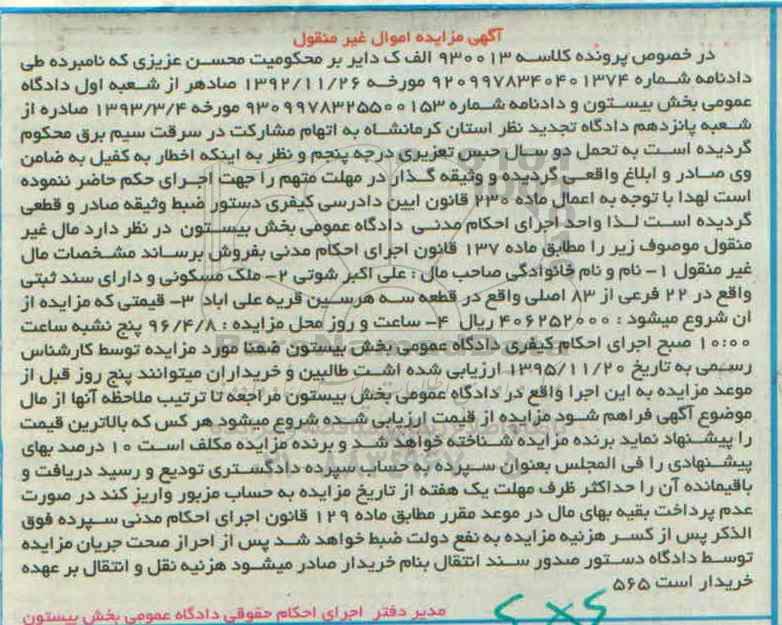 آگهی مزایده اموال غیر منقول
در خصوص پرونده کلاسه ۹۳۰۰۱۳ الف ک دایر بر محکومیت محسن عزیزی که نامبرده طی
دادنامه شماره ۹۲۰۹۹۷۸۳۴۰۴۰۱۳۷۴ مورخه ۱۳۹۲/۱۱/۲۶ صادهر از شعبه اول دادگاه
عمومی بخش بیستون و دادنامه شماره ۹۳۰۹۹۷۸۳۲۵۵۰۰۱۵۳ مورخه ۱۳۹۳/۳/۴ صادره از
شعبه پانزدهم دادگاه تجدید نظر استان کرمانشاه به اتهام مشارکت در سرقت سیم برق محکوم
گردیده است به تحمل دو سال حبس تعزیری درجه پنجم و نظر به اینکه اخطار به کفیل به ضامن
وی صادر و ابلاغ واقعی گردیده و وثیقه گذار در مهلت متهم را جهت اجرای حکم حاضر ننموده
است لهدا با توجه به اعمال ماده ۲۳۰ قانون ایین دادرسی کیفری دستور ضبط وثیقه صادر و قطعی
گردیده است لذا واحد اجرای احکام مدنی دادگاه عمومی بخش بیستون در نظر دارد مال غیر
منقول موصوف زیر را مطابق ماده ۱۳۷ قانون اجرای احکام مدنی بفروش برساند مشخصات مال
غیر منقول ۱- نام و نام خانوادگی صاحب مال : علی اکبر شوتی ۲- ملک مسکونی و دارای سند ثبتی
واقع در ۲۲ فرعی از ۸۳ اصلی واقع در قطعه سه هرسین قریه علی اباد ۳- قیمتی که مزایده از
ان شروع میشود : ۴۰۶۲۵۲۰۰۰ ریال ۴- ساعت و روز محل مزایده : ۹۶/۴/۸ پنج نشبه ساعت
۱۰:۰۰ صبح اجرای احکام کیفری دادگاه عمومی بخش بیستون ضمنا مورد مزایده توسط کارشناس
رسمی به تاریخ ۱۳۹۵/۱۱/۲۰ ارزیابی شده اشت طالبین و خریداران میتوانند پنج روز قبل از
موعد مزایده به این اجرا واقع در دادگاه عمومی بخش بیستون مراجعه تا ترتیب ملاحظه آنها از مال
موضوع آگهی فراهم شود مزایده از قیمت ارزیابی شده شروع میشود هر کس که بالاترین قیمت
را پیشنهاد نماید برنده مزایده شناخته خواهد شد و برنده مزایده مکلف است ۱۰ درصد بهای
پیشنهادی را فی المجلس بعنوان سپرده به حساب سپرده دادگستری تودیع و رسید دریافت و
باقیمانده آن را حداکثر ظرف مهلت یک هفته از تاریخ مزایده به حساب مزبور واریز کند در صورت
عدم پرداخت بقیه بهای مال در موعد مقرر مطابق ماده ۱۲۹ قانون اجرای احکام مدنی سپرده فوق
الذکر پس از کسر هزنیه مزایده به نفع دولت ضبط خواهد شد پس از احراز صحت جریان مزایده
توسط دادگاه دستور صدور سند انتقال بنام خریدار صادر میشود هزنیه نقل و انتقال بر عهده
خریدار است ۵۶۵
مدیر دفتر اجرای احکام حقوقی دادگاه عمومی بخش بیستون